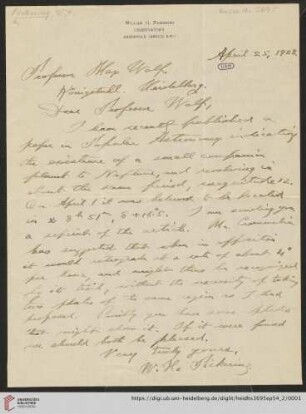 William H. Pickering
Observatory
April 25, 1928.
Professor Max Wolf
Königstuhl, Heidelberg.
Dear Professor Wolf,
I have recently published a
paper in Popular Astronomy indicating
the existence of a small companion
planet to Neptune, and revolving in
about the same period,
On April 1 it was believed to be located
in
I am sending you
a reprint of the article. Mr.
has suggested that when in opposition
it would retrograde at a rate of about 4"
per hour, and might thus be recognized
by its trail, without the necessity of taking
two plates of the same region as I had
proposed. Possibly you have some plates
that might show it. If it were found
we should both be pleased.
Very truly yours,
W. H. Pickering
https://digi.ub.uni-heidelberg.de/diglit/heidhs3695ep14_2/0001